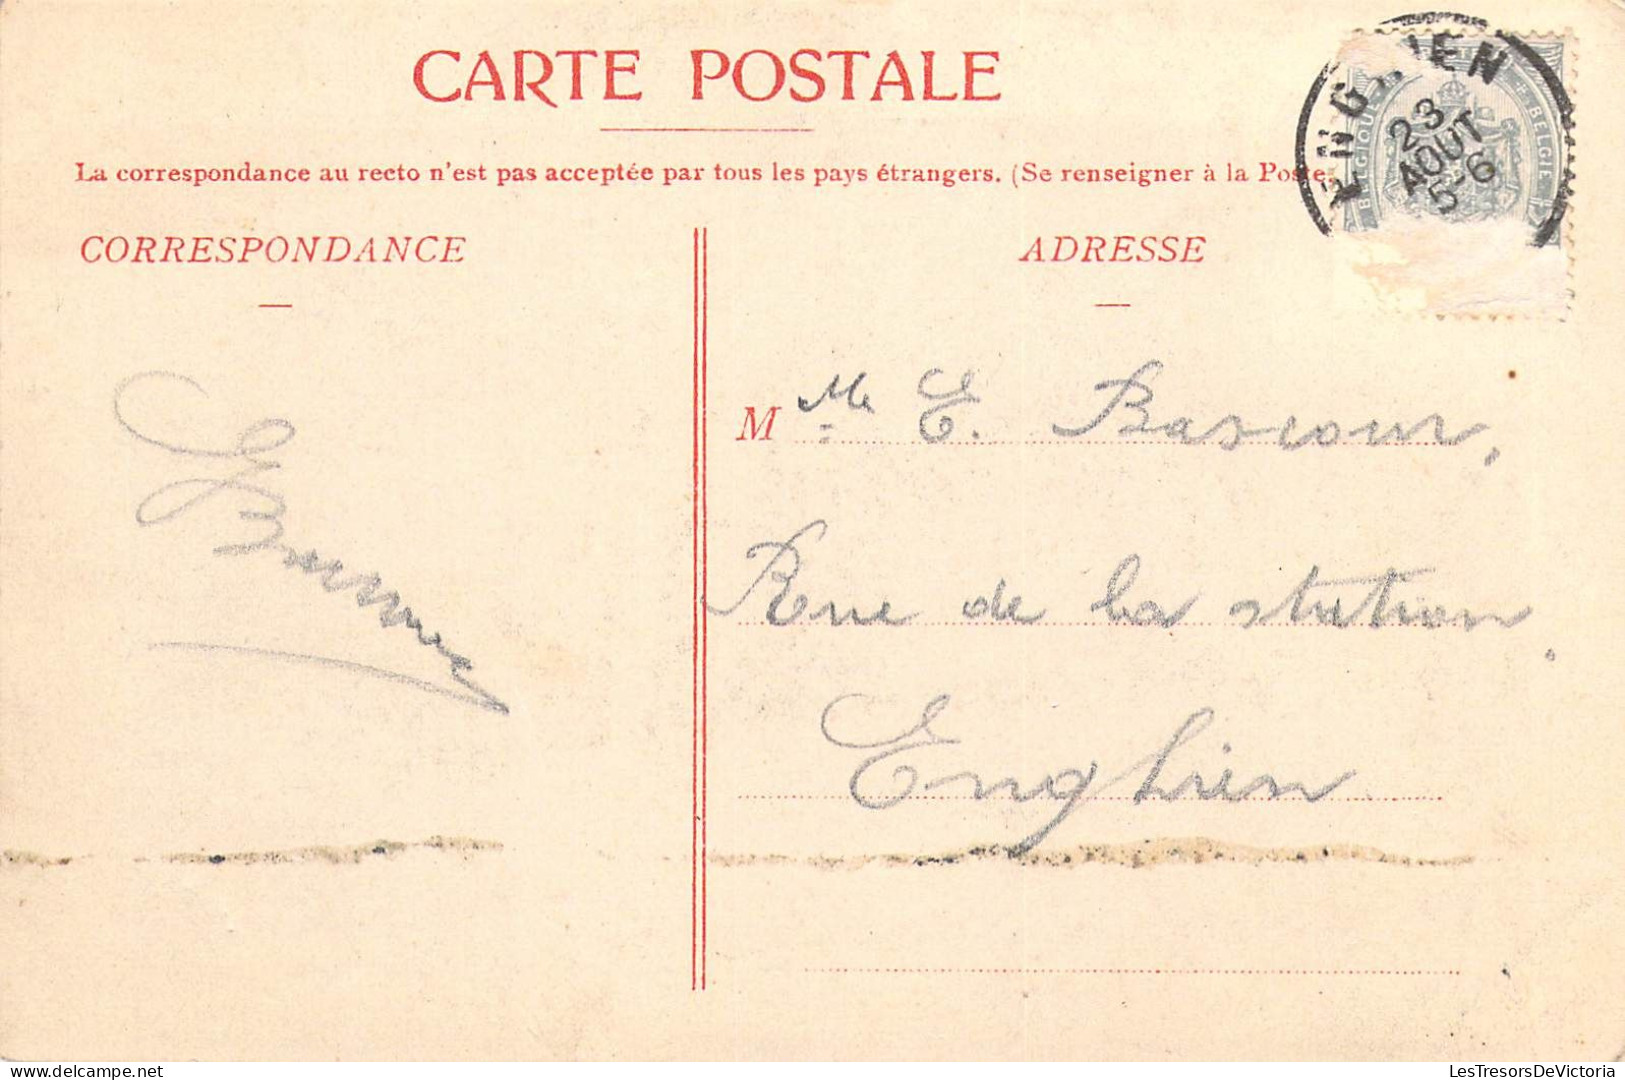 CARTE POSTALE
La correspondance au recto n'est pas acceptée par tous les pays étrangers. (Se renseigner à la Poste.
CORRESPONDANCE
ADRESSE
ENGHIEN
23
AOUT
5-6
BELGIQUE
BELGIE
M lle E. Bascour,
Rue de la station.
Enghien
www.delcampe.net
LesTresorsDeVictoria